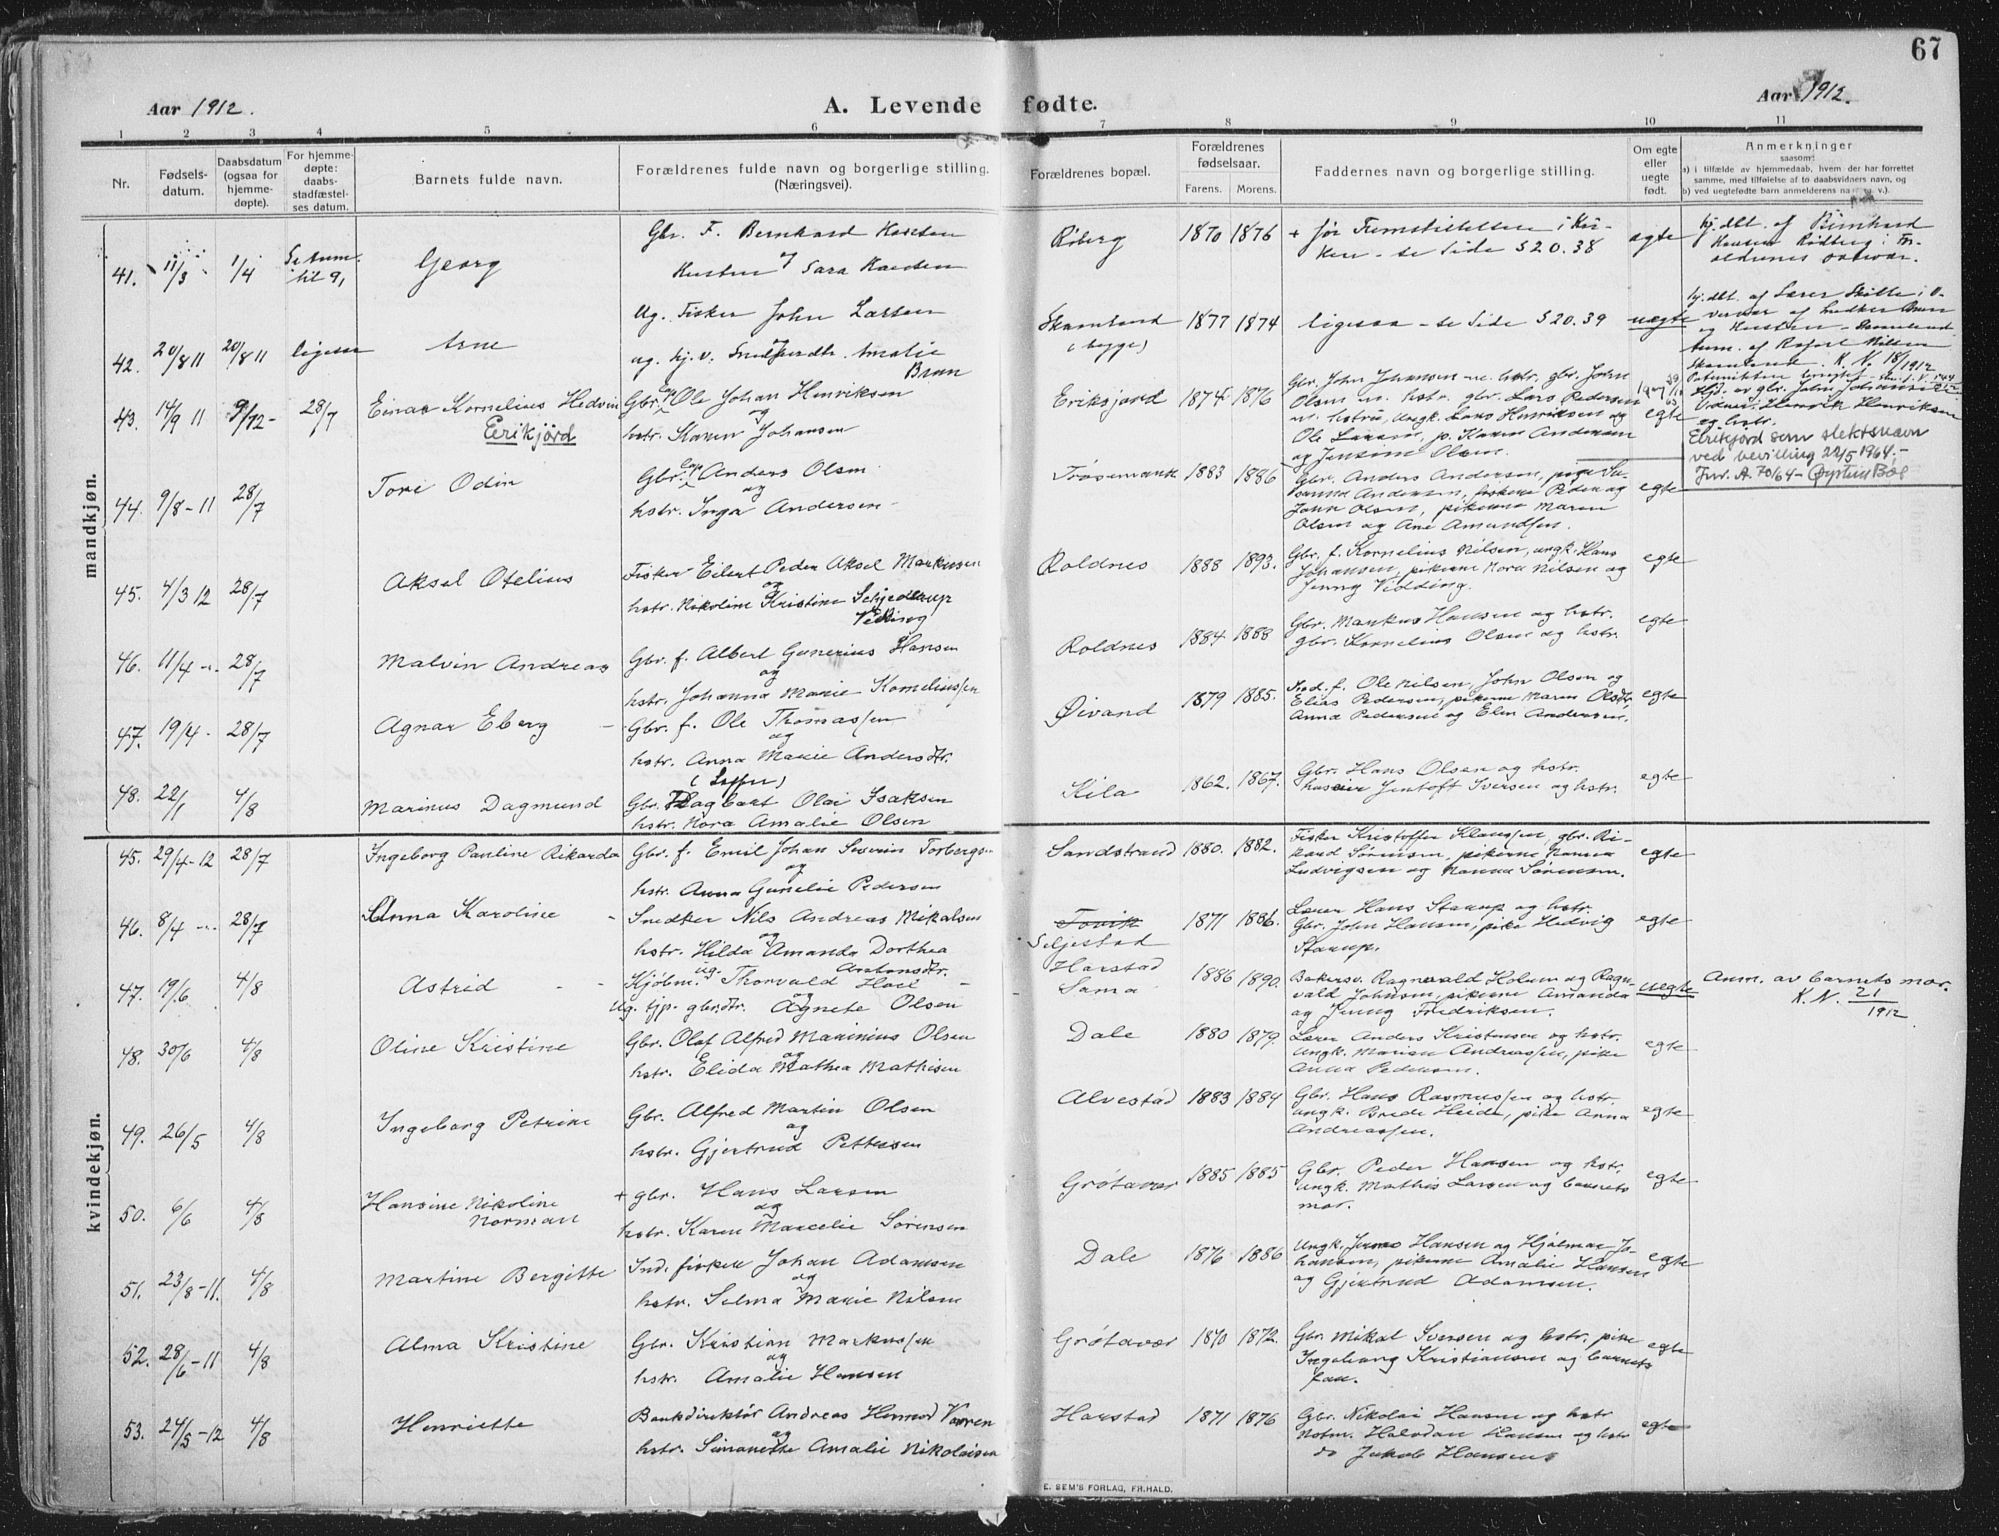 67
Aar 1912.
A. Levende fødte.
Aar 1912.
1 2 3 4 5 6 7 8 9 10 11
Nr.
Fødsels-
datum.
Daabsdatum
(ogsaa for
hjemme-
døpte).
For hjemme-
døpte:
daabs-
stadfæstel-
ses datum.
Barnets fulde navn.
Forældrenes fulde navn og borgerlige stilling.
(Næringsvei).
Forældrenes bopæl.
Forældrenes
fødselsaar.
Farens. Morens.
Faddernes navn og borgerlige stilling.
Om egte
eller
uegte
født.
Anmerkninger
saasom:
a) i tilfælde av hjemmedaab, hvem der har forrettet
samme, med tilføielse af to daabsvidners navn, og
b) ved uegtefødte barn anmelderens
mandkjøn.
41. 11/3 1/4
til 9,
Georg
Gbr. F. Bernhard Hansen
og Sara
1870 1876
+ før i Kir-
ken - se Side S 20. 38
egte
hj.dbt. af
Hansen
42. 20/8 11 20/8 11 ligesaa
Arne
Ug. Fisker John Larsen
og
ug. hj. v. Amalie
Brun
(begge)
1877 1874
ligesaa - se Side S 20. 39
uegte
hj. dbt. af Lærer
K. N. 18/1912
43. 14/9 11 28/7
Einar Kornelius Hedvin
Erikjord
Gbr. Ole Johan Henriksen
og
hstr. Karen Johansen
Eriksjord
1874 1876
Gbr. John Johansen m. hstr, gbr. John
Olsen m. hstr. gbr. Lars Pedersen
m. hstru, ungk. Lars Henriksen og
Ole Larsen, p. Karen Andersen
og Jensine Olsen.
egte
Hjd. av gbr. John Johansen
Vidner: Henrik Henriksen
og hstr.
som slektsnavn
ved bevilling 22/5 1964.-
Jnr. A. 70/64 - Øystein
44. 9/8 - 11 28/7
Tore Odin
Gbr. Anders Olsen
og
hstr. Inga Andersen
1883 1886
Gbr. Anders Andersen, pige Su-
sanna Andersen, fiskerne Peder og
John Olsen, pikerne Maren
Olsen og Ane Amundsen.
egte
45. 4/3 12 28/7
Aksel Otelius
Fisker Eilert Peder Aksel Markusen
og
hstr. Nikoline Kristine Schjelderup
Vebbing
Roldnes
1888 1893.
Gbr. f. Kornelius Nilsen, ungk. Hans
Johansen, pikerne Nora Nilsen og
Jenny
egte
46. 11/4 -"- 28/7
Malvin Andreas
Gbr. f. Albert Gunerius Hansen
og
hstr. Johanna Marie Kornelius/en
Roldnes
1884 1888
Gbr. Markus Hansen og hstr.
gbr. Kornelius Olsen og hstr.
egte
47. 19/4 - 28/7
Agnar Eberg -
Gbr. f. Ole Thomas/en
og
hstr. Anna Marie Andersdtr.
Øivand
1879 1885.
f. Ole Nilsen, John Olsen og
Elias Pedersen, pikerne Maren Olsdtr.
Anna Pedersen og Elen Andersen.
egte
48. 22/1 4/8
Marinus Dagmund
Gbr. Dagbart Olai Isaksen
hstr. Nora Amalie Olsen
Kila
1862. 1867.
Gbr. Hans Olsen og hstr.
Jentoft Iversen og hstr.
egte
kvindekjøn.
45. 29/4 - 12 28/7
Ingeborg Pauline Rikarda
Gbr. f. Emil Johan Severin Torbergs-
og
hstr. Anna Gunelie Pedersen
Sandstrand
1880. 1882.
Fisker Kristoffer Klaus/en, gbr. Ri-
kard Sørensen, pikerne Hanna
Ludvigsen og Hanna Sørensen.
egte
46. 8/4 -"- 28/7
Anna Karoline -
Snedker Nils Andreas Mikalsen
og
hstr. Hilda Amanda Dorthea
Antonsdtr.
Seljestad
1871 1886.
Lærer Hans Staarup og hstr.
Gbr. John Hansen, pike Hedvig
Staarup.
egte
47. 19/6 4/8
Astrid - -
Kjøbm. ug. Thorvald Hoel -
og
Ug. tjp. gbr.dtr. Agnete Olsen
Harstad
Sama
1886 1890.
Bakersv. Ragnvald Holum og Ragn-
vald Johnsen, pikerne Amanda
og Jenny Fredriksen.
uegte
Anm. av barnets mor.
K. N. 21/1912
48. 30/6 4/8
Oline Kristine
Gbr. Olaf Alfred Marinius Olsen
og
hstr. Elida Mathea Mathisen
Dale
1880 1879.
Lærer Anders Kristensen og hstr.
ungk. Marius Andreas/en, pike
Anna Pedersen.
egte
49. 26/5 4/8
Ingeborg Petrine
Gbr. Alfred Martin Olsen
og
hstr. Gjertrud Pettersen
Alvestad
1883 1884
Gbr. Hans Rasmus/en og hstr.
ungk. Brede Heide, pike Anna
Andreas/en.
egte
50. 6/6 4/8
Hansine Nikoline
Norman
+ gbr. Hans Larsen
og
hstr. Karen Marcelie Sørensen
Grøtavær
1885 1885
Gbr. Peder Hansen og hstr.
ungk. Mathis Larsen og barnets
mor.
egte
51. 23/8 - 11. 4/8
Martine Bergitte
Ind. fisker Johan Adamsen
og
hstr. Selma Marie Nilsen
Dale
1876 1886
Ungk. Jens Hansen og Hjalmar Jo-
hansen, pikerne Amalie Hansen
og Gjertrud Adamsen.
egte
52. 28/6 - 11 4/8
Alma Kristine
Gbr. Kristian Markus/en
og
hstr. Amalie Hansen
Grøtavær
1870 1872.
Gbr. Mikal Iversen og hstr, pike
Ingeborg Kristiansen og barnets
far.
egte
53. 24/5 - 12 4/8
Henriette
Bankdirektør Andreas Hemod Vaaren
og
hstr. Simonette Amalie Nikolaisen
Harstad
1871 1876
Gbr. Nikolai Hansen og hstr
Halvdan Hansen og hstr
do Jakob Hansens
egte
E. SEM'S FORLAG, FR.HALD.